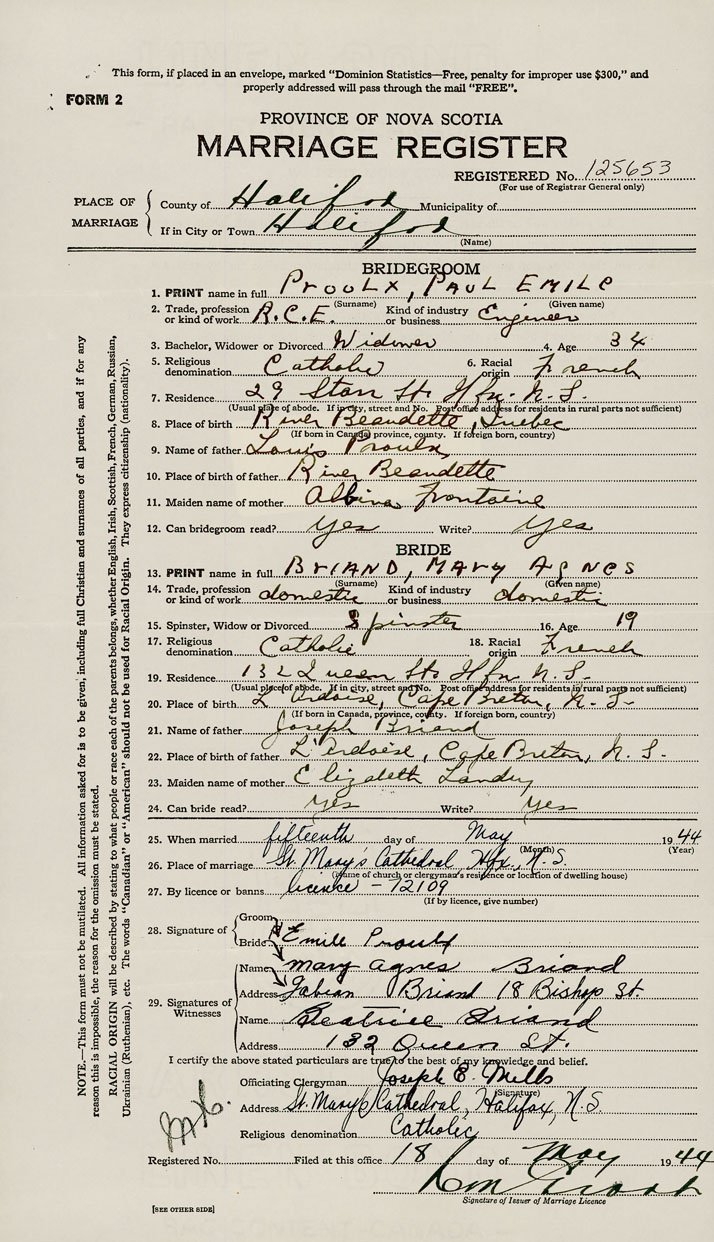 This form, if placed in an envelope, marked "Dominion Statistics—Free, penalty for improper use $300," and
properly addressed will pass through the mail "FREE".
FORM 2
PROVINCE OF NOVA SCOTIA
MARRIAGE REGISTER
REGISTERED No. 125653
(For use of Registrar General only)
PLACE OF MARRIAGE
County of Halifax Municipality of
If in City or Town Halifax
(Name)
BRIDEGROOM
1. PRINT name in full Proulx, Paul Emile
(Surname) (Given name)
2. Trade, profession or kind of work R.C.E. Kind of industry or business Engineer
3. Bachelor, Widower or Divorced Widower 4. Age 34
5. Religious denomination Catholic 6. Racial origin French
7. Residence 29 Starr St. Hfx. N.S.
(Usual place of abode. If in city, street and No. Post office address for residents in rural parts not sufficient)
8. Place of birth River Beaudette, Quebec
(If born in Canada, province, county. If foreign born, country)
9. Name of father Louis Proulx
10. Place of birth of father River Beaudette
11. Maiden name of mother Albina Frontaine
12. Can bridegroom read? yes Write? yes
BRIDE
13. PRINT name in full Briand, Mary Agnes
(Surname) (Given name)
14. Trade, profession or kind of work domestic Kind of industry or business domestic
15. Spinster, Widow or Divorced Spinster 16. Age 19
17. Religious denomination Catholic 18. Racial origin French
19. Residence 132 Queen St. Hfx N.S.
(Usual place of abode. If in city, street and No. Post office address for residents in rural parts not sufficient)
20. Place of birth L'Ardoise, Cape Breton, N.S.
(If born in Canada, province, county. If foreign born, country)
21. Name of father Joseph Briand
22. Place of birth of father L'Ardoise, Cape Breton, N.S.
23. Maiden name of mother Elizabeth Landry
24. Can bride read? Yes Write? Yes
25. When married fifteenth day of May 1944
(Month) (Year)
26. Place of marriage St. Mary's Cathedral, Hfx., N.S.
(Name of church or clergyman's residence or location of dwelling house)
27. By licence or banns licence - 72109
(If by licence, give number)
28. Signature of
Groom
Bride Emile Proulx
29. Signatures of Witnesses
Name Mary Agnes Briand
Address Fabian Briand 18 Bishop St.
Name Beatrice Briand
Address 132 Queen St.
I certify the above stated particulars are true to the best of my knowledge and belief.
Officiating Clergyman Joseph E. Mills
(Signature)
Address St. Mary's Cathedral, Halifax, N.S.
Religious denomination Catholic
Registered No. Filed at this office 18 day of May 1944
Signature of Issuer of Marriage Licence
[SEE OTHER SIDE]
NOTE.—This form must not be mutilated. All information asked for is to be given, including full Christian and surnames of all parties, and if for any
reason this is impossible, the reason for the omission must be stated.
RACIAL ORIGIN will be described by stating to what people or race each of the parents belongs, whether English, Irish, Scottish, French, German, Russian,
Ukrainian (Ruthenian), etc. The words "Canadian" or "American" should not be used for Racial Origin. They express citizenship (nationality).